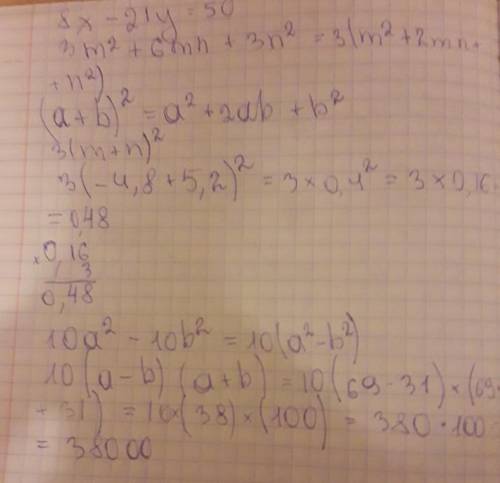 8x - 21y = 50
3m² + 6mn + 3n² = 3(m² + 2mn +
+ n²)
(a+b)² = a² + 2ab + b²
3(m+n)²
3(-4,8 + 5,2)² = 3 × 0,4² = 3 × 0,16
= 0,48
× 0,16
3
0,48
10a² - 10b² = 10(a² - b²)
10(a-b)(a+b) = 10(69-31)×(69
+31) = 10×(38)×(100) = 380·100
= 38000